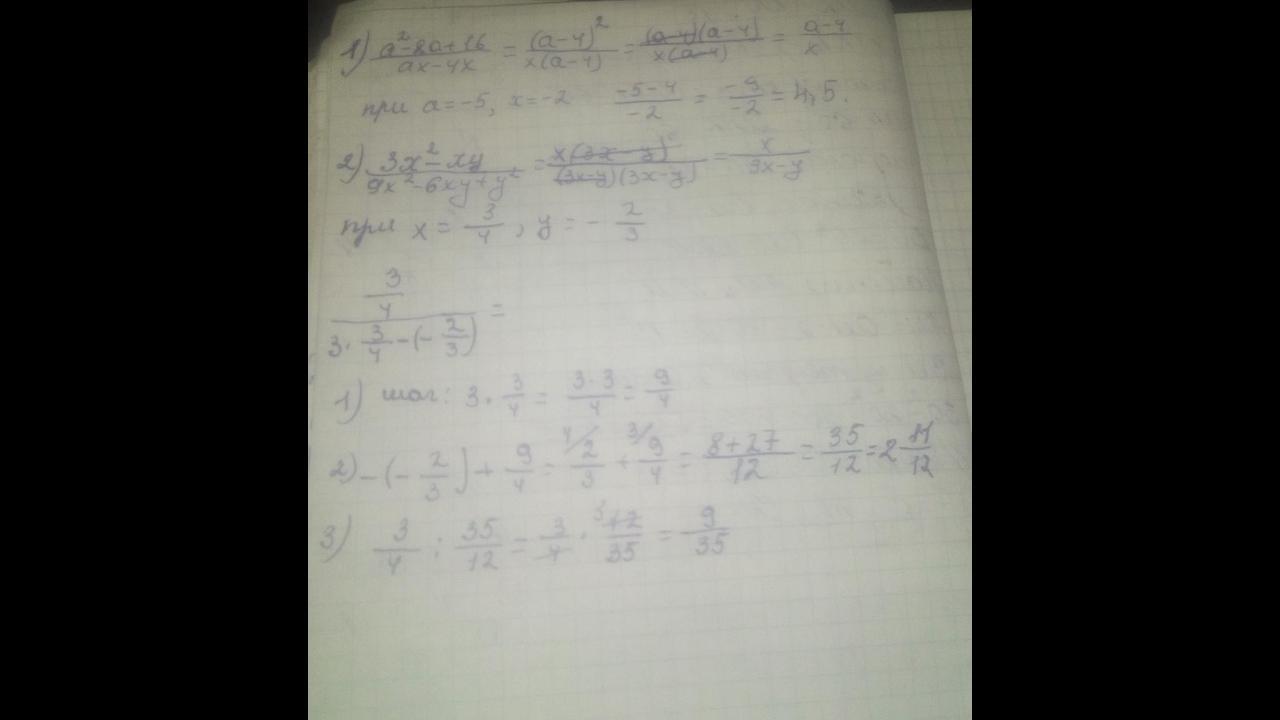 1) (a²-8a+16)/(ax-4x) = (a-4)²/(x(a-4)) = ((a-4)(a-4))/(x(a-4)) = (a-4)/x
при a=-5, x=-2 (-5-4)/(-2) = (-9)/(-2) = 4,5.
2) (3x²-xy)/(9x²-6xy+y²) = (x(3x-y))/((3x-y)(3x-y)) = x/(3x-y)
при x = 3/4, y = -2/3
(3/4)/(3·3/4-(-2/3)) =
1) шаг: 3·3/4 = (3·3)/4 = 9/4
2) -(-2/3)+9/4 = 4/ 2/3 + 3/ 9/4 = (8+27)/12 = 35/12 = 2 11/12
3) 3/4 : 35/12 = 3/4 · 3 12/35 = 9/35